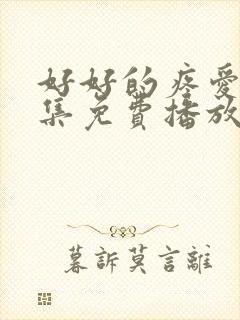 好好的疼爱
集免费播放
暮訴莫言離